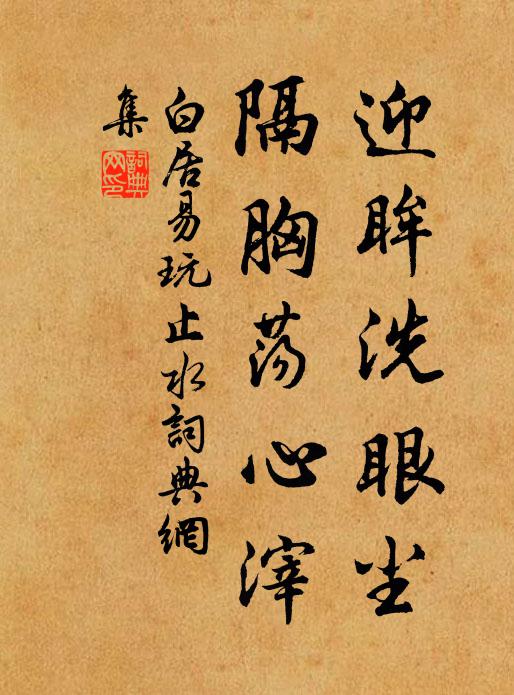 迎眸洗眼尘
隔胸荡心滓
白居易玩止水詞典網
集
詞典
网印